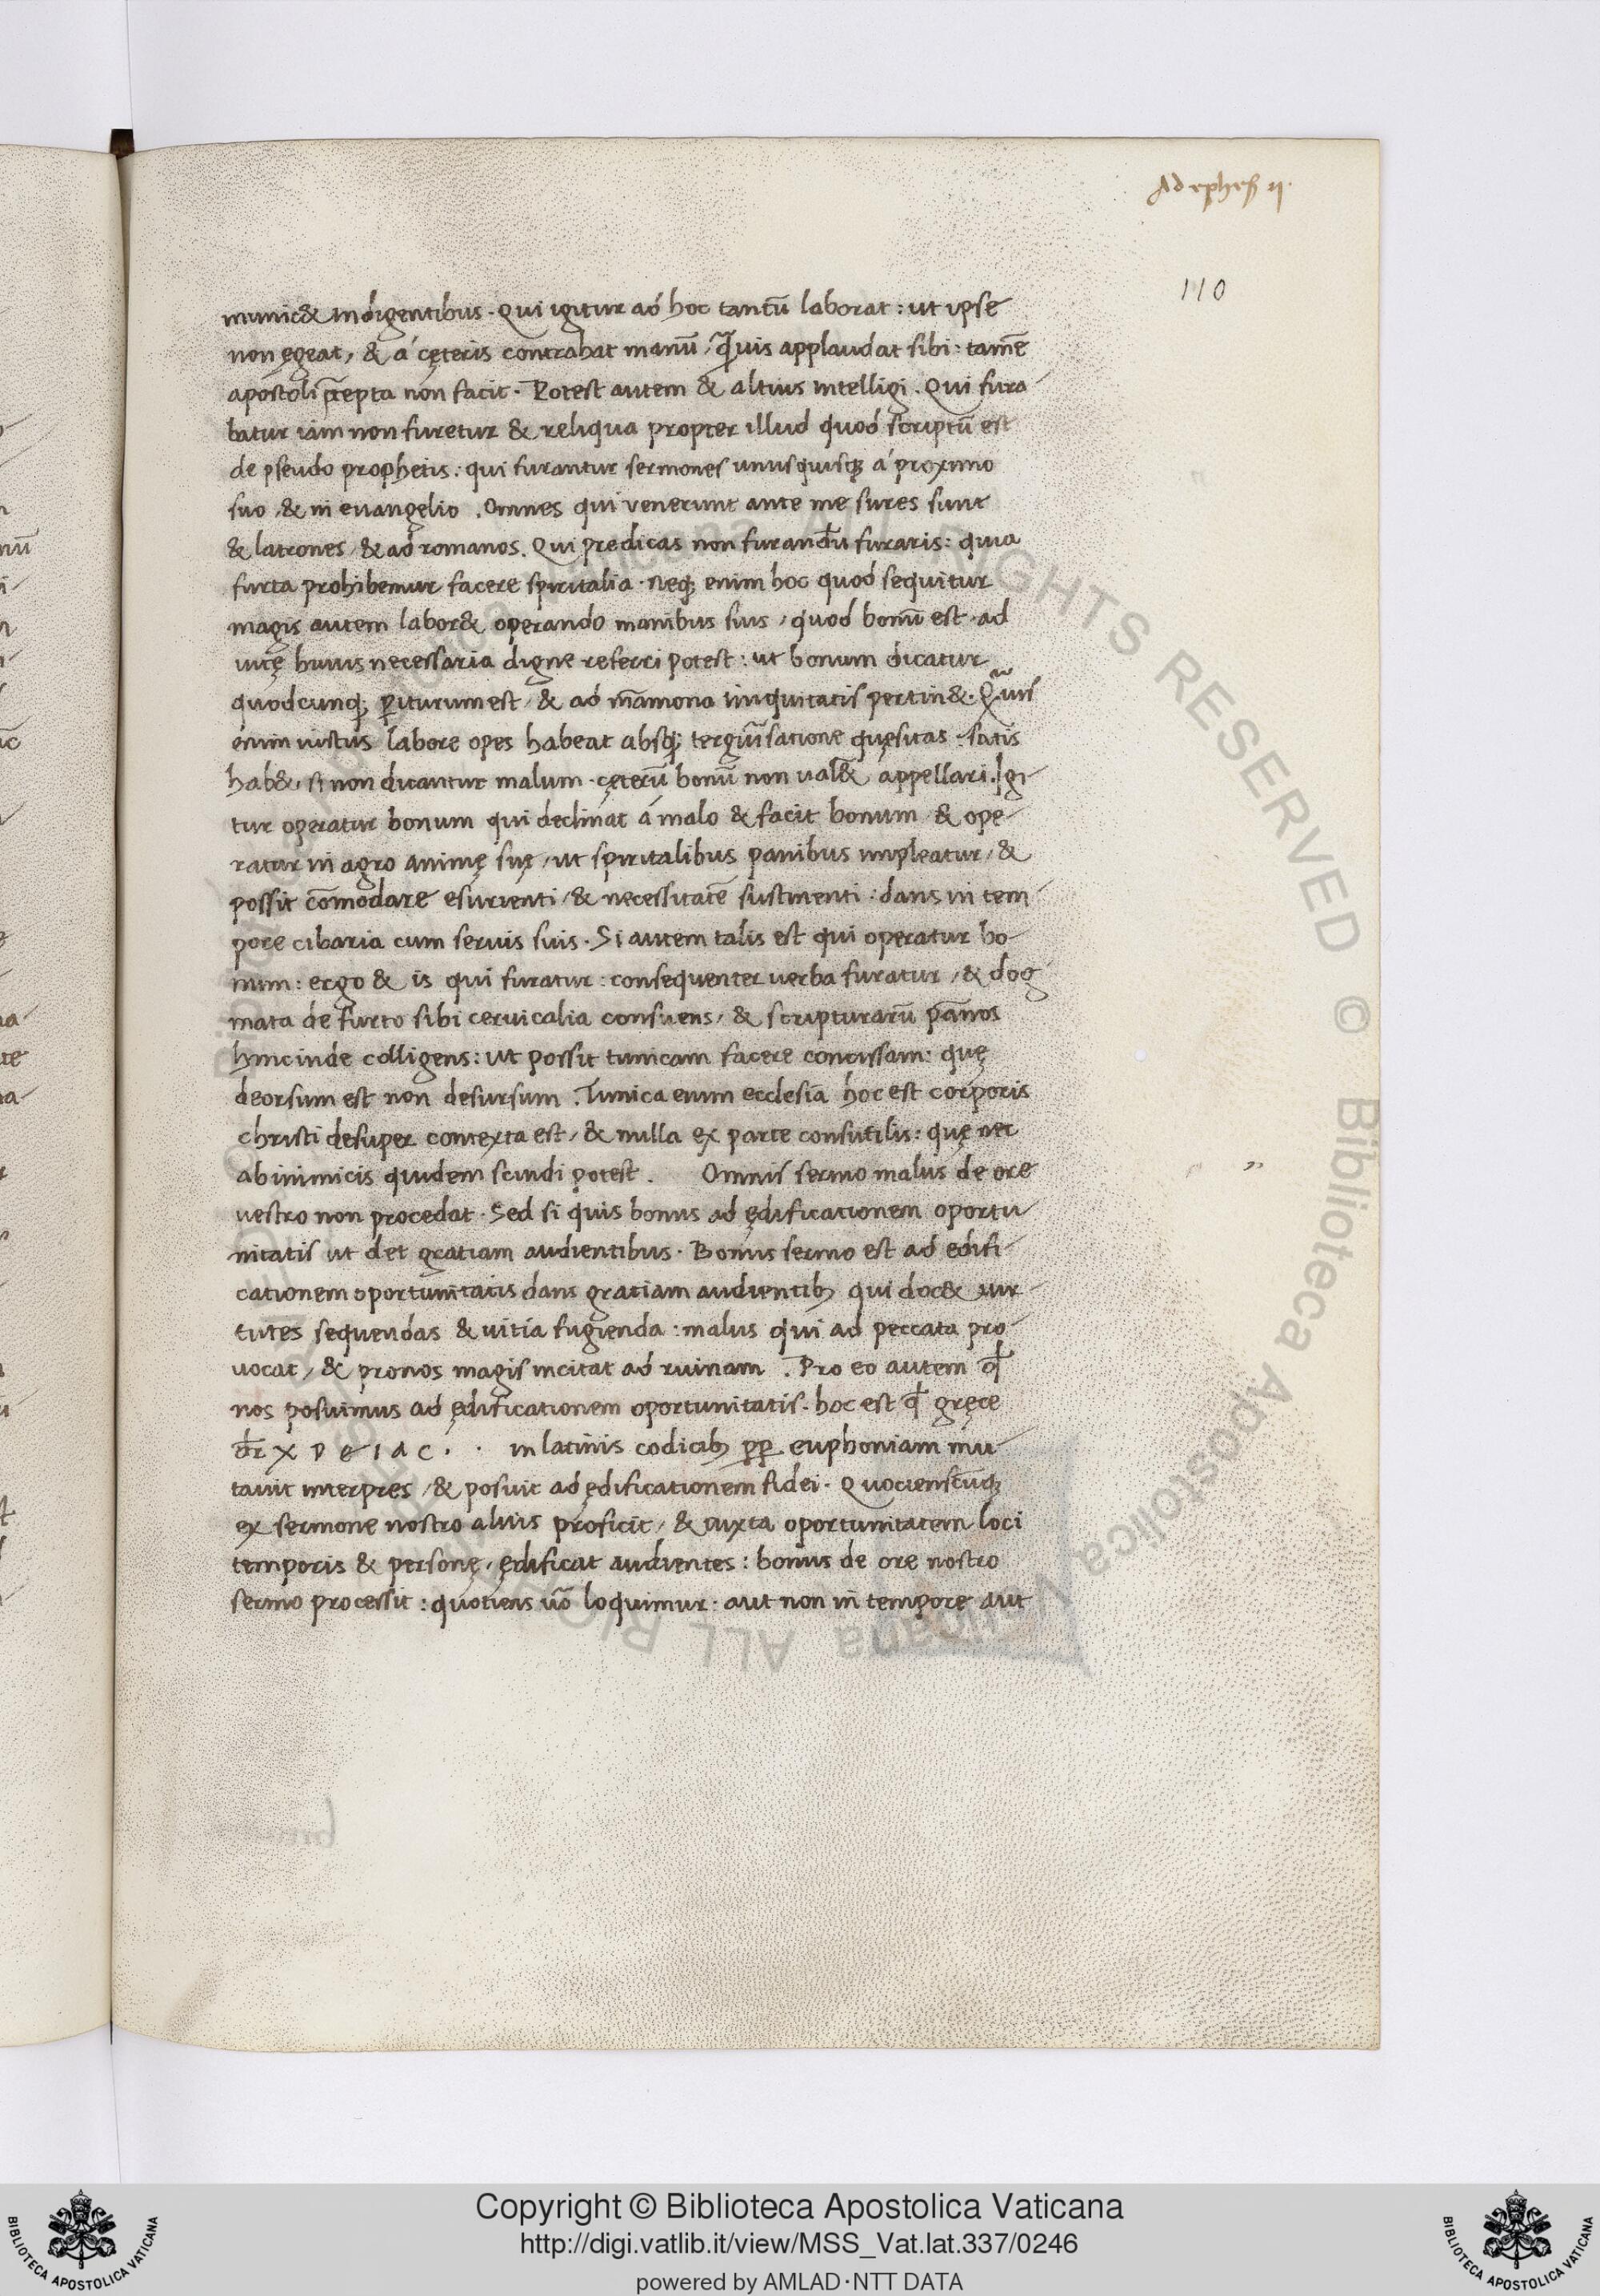 Ad ephes ii.
110
municet indigentibus. Qui igitur ad hoc tantū laborat: ut ipse
non egeat, & á cęteris contrahat manū, q̄uis applaudat sibi: tamē
apostoli p̄cepta non facit. Potest autem & altius intelligi. Qui fura
batur iam non furetur & reliqua propter illud quod scriptū est
de pseudo prophetis: qui furantur sermones unusquisq; á proximo
suo, & in evangelio. Omnes qui venerunt ante me fures sunt
& latrones, & ad romanos. Qui predicas non furandū furaris: quia
furta prohibemur facere spiritalia. Neq; enim hoc quod sequitur
magis autem labor& operando manibus suis, quod bonū est, ad
uitę huius necessaria digne referri potest: ut bonum dicatur
quodcunq; periturum est, & ad māmona iniquitatis pertin&. Q̄uis
enim iustus labore opes habeat absq; tergiūsatione quęsitas: satis
hab&, si non dicantur malum. cęterū bonū non ual& appellari. Igi
tur operatur bonum qui declinat á malo & facit bonum, & ope
ratur in agro animę suę, ut spiritalibus panibus impleatur, &
possit cōmodare esurienti, & necessitatē sustinenti: dans in tem
pore cibaria cum servis suis. Si autem talis est qui operatur bo
num: ergo & is qui furatur: consequenter uerba furatur, & dog
mata de furto sibi cervicalia consuens, & scripturarū pānos
hincinde colligens: ut possit tunicam facere concissam: quę
deorsum est non desursum. Tunica enim ecclesia hoc est corporis
christi desuper contexta est, & nulla ex parte consutilis: quę nec
ab inimicis quidem scindi potest. Omnis sermo malus de ore
vestro non procedat. Sed si quis bonus ad ędificationem oportu
nitatis ut det gratiam audientibus. Bonus sermo est ad edifi
cationem oportunitatis dans gratiam audientib; qui doc& uir
tutes sequendas & uitia fugienda: malus qui ad peccata pro
vocat, & pronos magis incitat ad ruinam. Pro eo autem qđ
nos posuimus ad ędificationem oportunitatis. hoc est qđ gręce
dr̄ X P e I a C. . in latinis codicib; pp̄ euphoniam mu
tavit interpres, & posuit ad ędificationem fidei. Quotienscūq;
ex sermone nostro aliuis proficit, & iuxta oportunitatem loci
temporis & personę, ędificat audientes: bonus de ore nostro
sermo processit: quotiens ūo loquimur: aut non in tempore aut
Copyright © Biblioteca Apostolica Vaticana
http://digi.vatlib.it/view/MSS_Vat.lat.337/0246
powered by AMLAD·NTT DATA
BIBLIOTECA APOSTOLICA VATICANA
BIBLIOTECA APOSTOLICA VATICANA